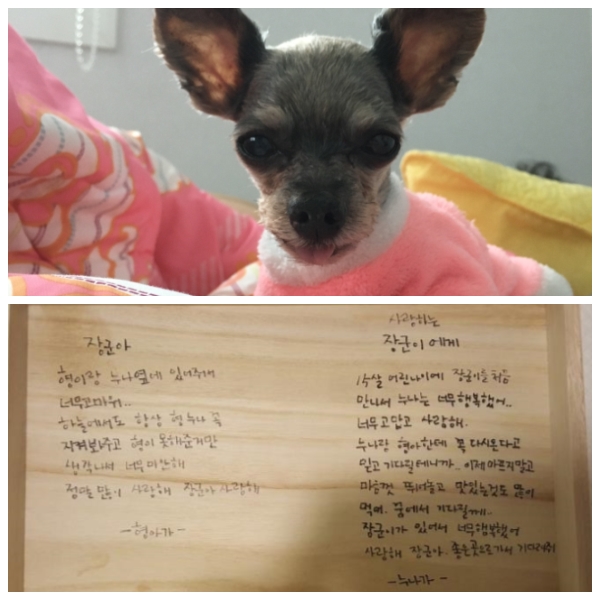 장군아
형이랑 누나옆에 있어주어
너무고마워..
하늘에서도 항상 형누나 꼭
지켜봐주고 형이 못해준거만
생각나서 너무미안해
정말 많이 사랑해 장군아 사랑해
-형아가-
사랑하는
장군이에게
어린나이에 장군이를처음
만나서 누나는 너무행복했어..
너무고맙고 사랑해.
누나랑 형아한테 꼭 다시온다고
믿고 기다릴테니까.. 이제아프지말고
마음껏 뛰어놀고 맛있는것도 많이
먹어. 꿈에서 기다릴께..
장군이가 있어서 너무행복했어
사랑해 장군아. 좋은곳으로가서
-누나가-